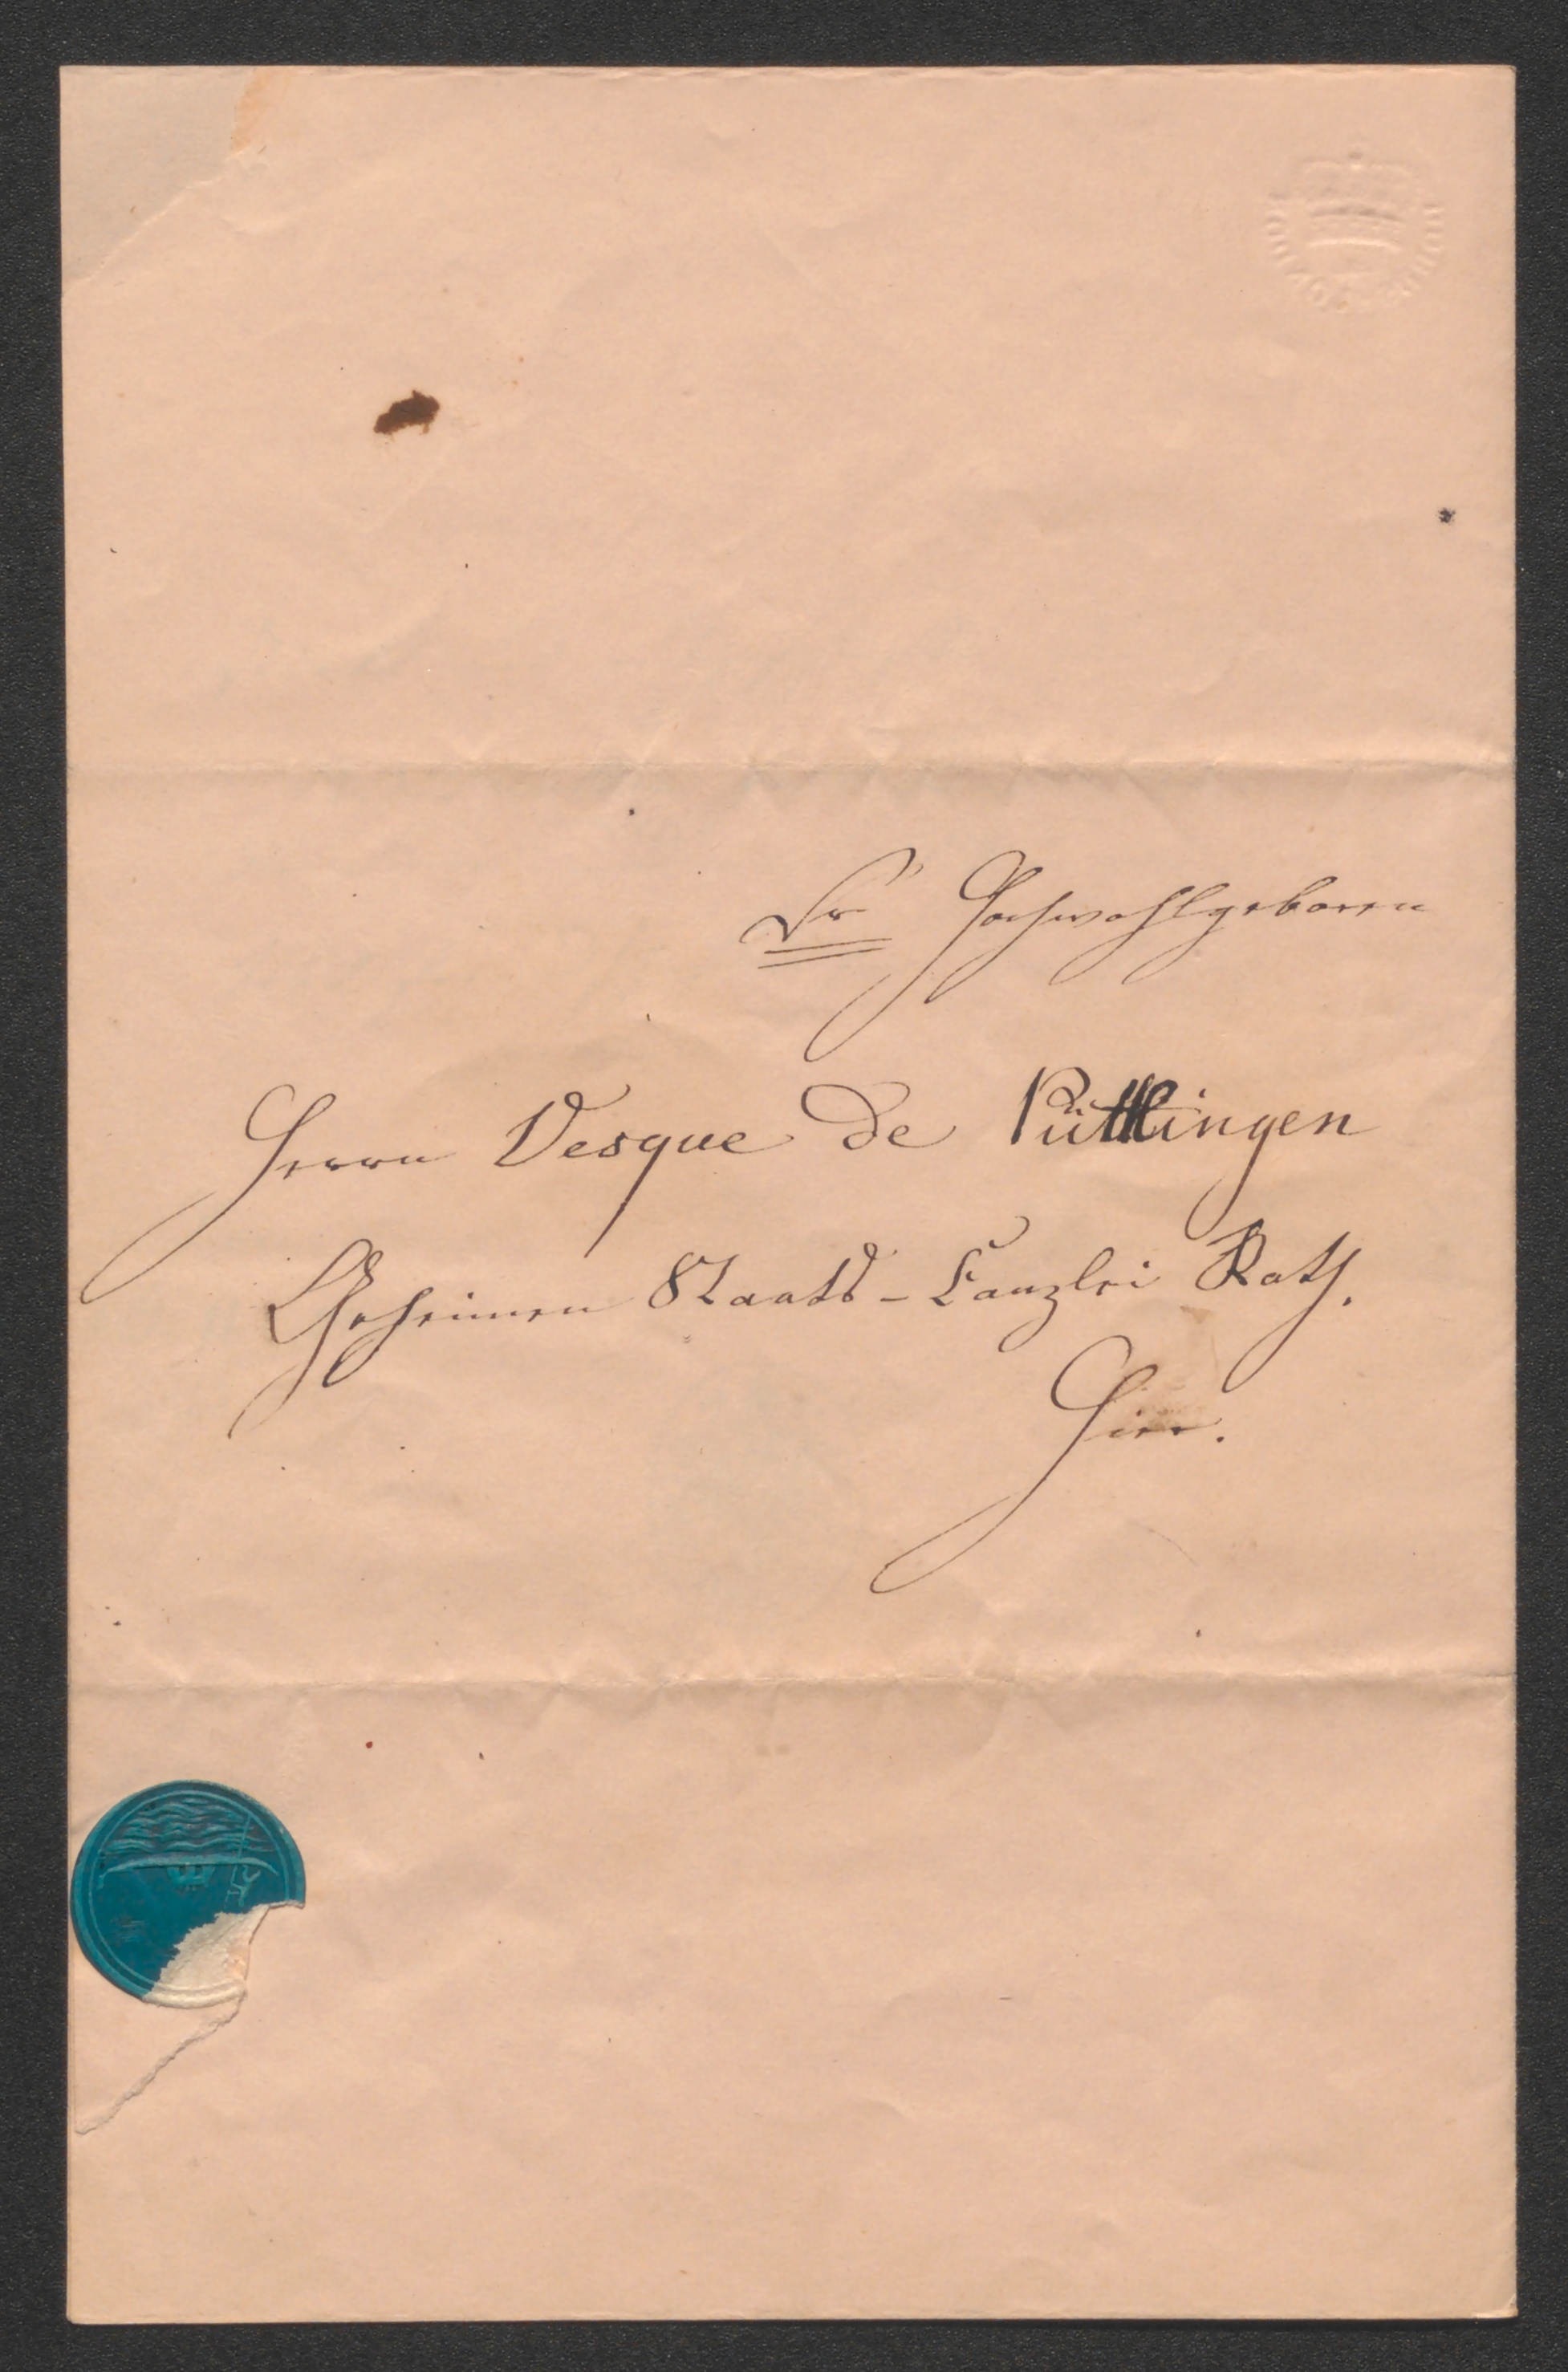 Sr Hochwohlgeboren
Herrn Vesque de Püttlingen
Geheimen Staats-Canzlei Rath.
Hier.